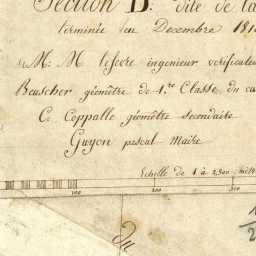 Section B. dite de la
terminée en Decembre 181
M: M lefevre ingenieur verificateu
Beuscher géomêtre de 1.re Classe, du ca
C. Coppalle géomêtre secondaire
Guyon pascal Maire
Echelle de 1 à 2,500 mètr
100 200 300
1
2